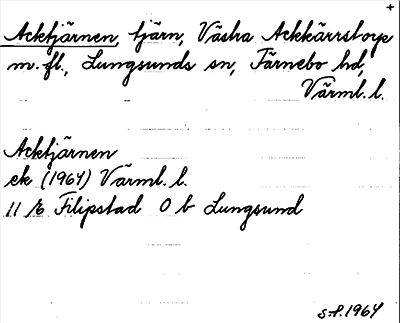 +
Acktjärnen, tjärn, Västra Ackkärrstorp
m. fl., Lungsunds sn, Färnebo hd,
Värml. l.
Acktjärnen
ek (1964) Värml. l.
11 /6 Filipstad O b Lungsund
S.P. 1964